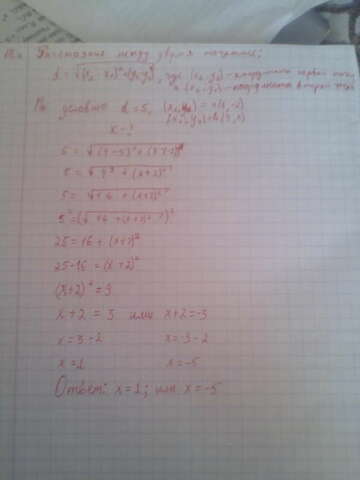 Расстояние между двумя точками:
d = √(x₂ - x₁)² + (y₂ - y₁)², где (x₁, y₁) - координаты первой точки
(x₂, y₂) - координаты второй точки
По условию d = 5, (x₁, y₁) =
x - ?
5 = √(9-5)² + (x+2)²
5 = √4² + (x+2)²
5 = √16 + (x+2)²
5² = (√16 + (x+2)²)²
25 = 16 + (x+2)²
25-16 = (x+2)²
(x+2)² = 9
x+2 = 3 или x+2 = -3
x = 3-2 x = -3-2
x = 1 x = -5
Ответ: x = 1; или x = -5